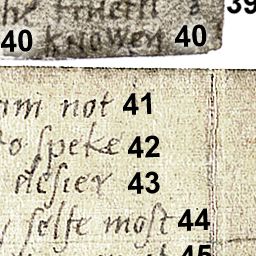 39
40 knowen 40
am not 41
to speke 42
desier 43
selfe most 44
45